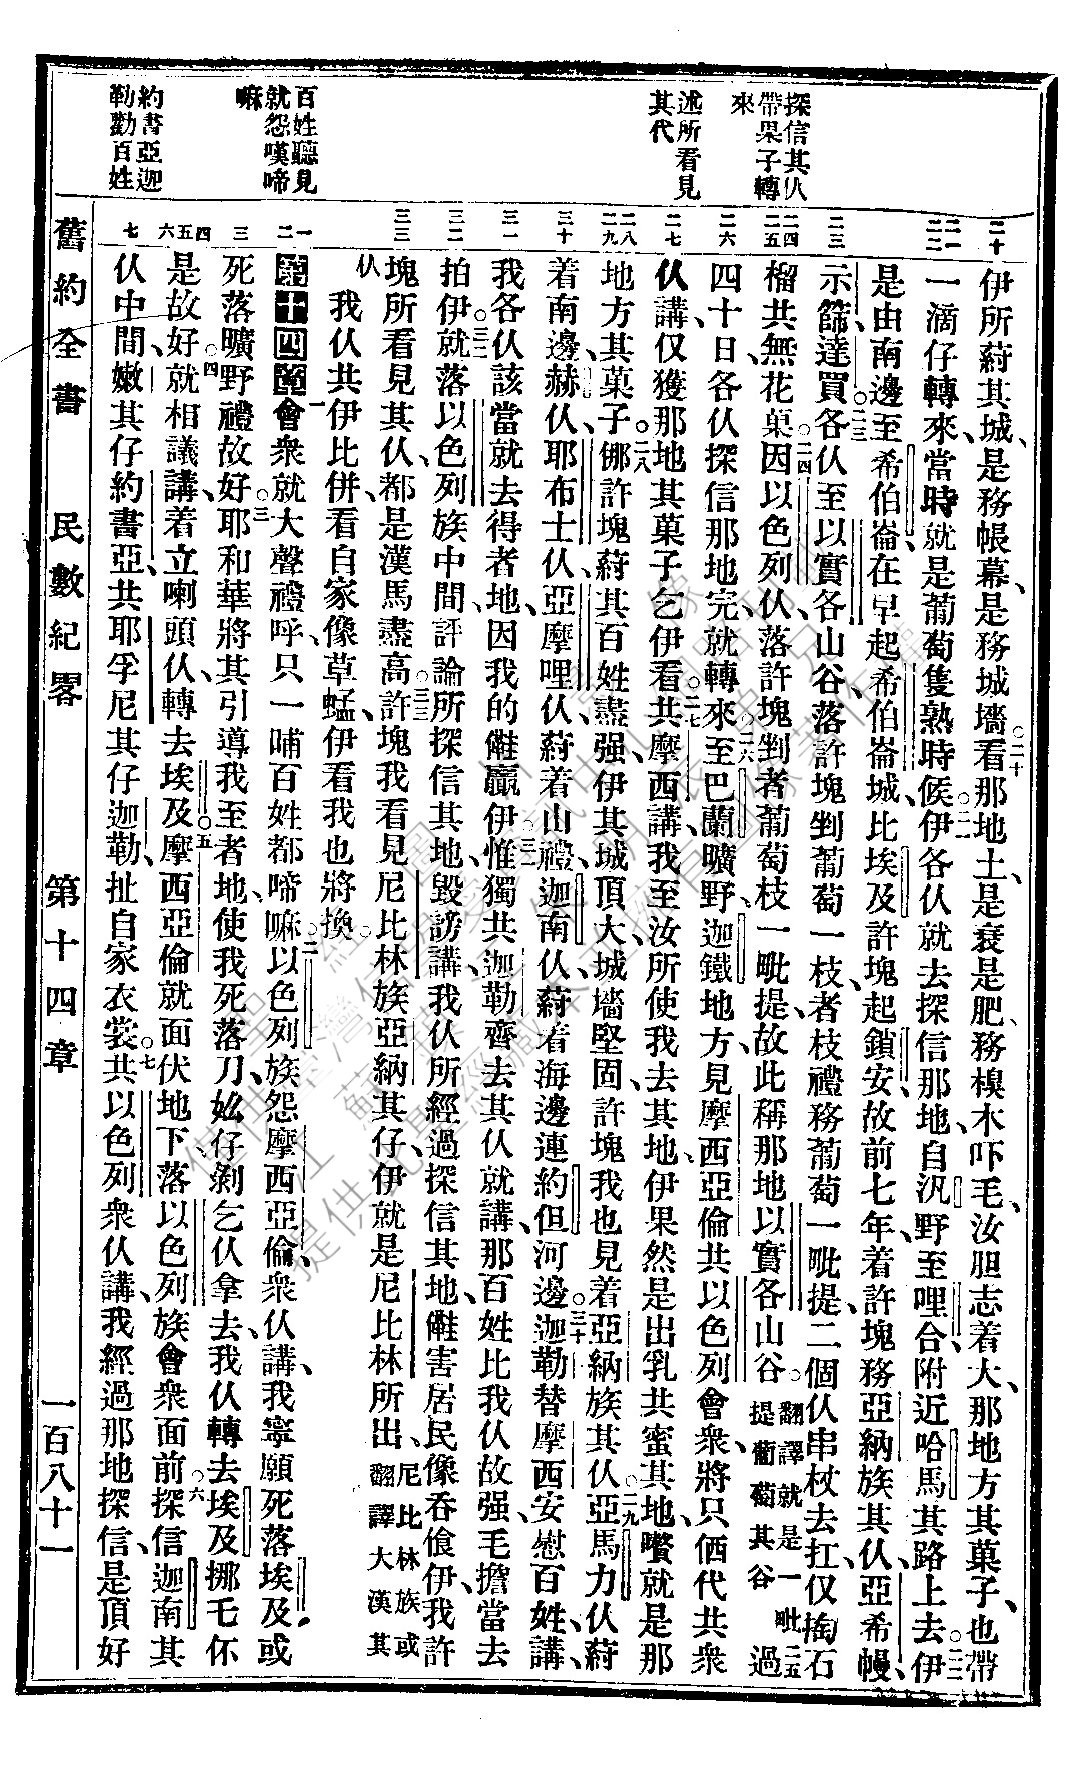 探信其仈
帶果子轉
來
述所看見
其代
百姓聽見
就怨嘆啼
嘛
約書亞迦
勒勸百姓
二十 二一 二二 二三 二四 二五 二六 二七 二八 二九 三十 三一 三二 三三 一 二 三 四 五 六 七
伊所葤其城、是務帳幕、是務城墻○二十看那地土、是衰是肥、務槺木吓毛、汝胆志着大、那地方其菓子、也帶
一滴仔轉來、當時就是葡萄隻熟時候○二一伊各仈就去探信那地、自汎野至哩合、附近哈馬其路上去伊○二二
是由南邊至希伯崙、在早起希伯崙城、比埃及許塊起鎖安、故前七年、着許塊務亞納族其仈、亞希幔、
示篩、達買各仈○二三至以實各山谷、落許塊剉葡萄一枝、者枝禮務葡萄一毗提、二個仈串杖去扛、仅掏石
榴共無花菓○二四因以色列仈、落許塊剉者葡萄枝一毗提、故此稱那地以實各山谷。翻譯就是一毗提葡萄其谷○二五過
四十日、各仈探信那地完、就轉來○二六至巴蘭曠野、迦鐵地方、見摩西亞倫共以色列會衆、將只價代共衆
仈講、仅獲那地其菓子乞伊看○二七共摩西講、我至汝所使我去其地、伊果然是出乳共蜜其地、嚽就是那
地方其菓子○二八㑚許塊葤其百姓盡强、伊其城頂大、城墻堅固、許塊我也見着亞納族其仈○二九亞馬力仈葤
着南邊、赫仈、耶布士仈、亞摩哩仈、葤着山禮、迦南仈葤着海邊連約但河邊○三十迦勒替摩西安慰百姓講、
我各仈該當就去得者地、因我的㒕贏伊○三一惟獨共迦勒齊去其仈就講、那百姓比我仈故强、毛擔當去
拍伊○三二就落以色列族中間、評論所探信其地、毀謗講、我仈所經過探信其地、㒕害居民、像吞飡伊、我許
塊所看見其仈、都是漢馬盡高○三三許塊我看見尼比林族、亞納其仔、伊就是尼比林所出、尼比林族或翻譯大漢其
仈 我仈共伊比併、看自家像草蜢、伊看我也將換○
第十四章 一會衆就大聲禮呼、只一晡百姓都啼嘛○二以色列族怨摩西亞倫、衆仈講、我寧願死落埃及、或
死落曠野禮故好○三耶和華將其引導我至者地、使我死落刀、妐仔剝乞仈拿去、我仈轉去埃及挪乇伓
是故好○四就相議講、着立喇頭仈、轉去埃及○五摩西亞倫就面伏地下、落以色列族會衆面前○六探信迦南其
仈中間、嫩其仔約書亞、共耶孚尼其仔迦勒、扯自家衣裳○七共以色列衆仈講、我經過那地探信、是頂好
舊約全書 民數紀畧 第十四章 一百八十一
提供 漢珍